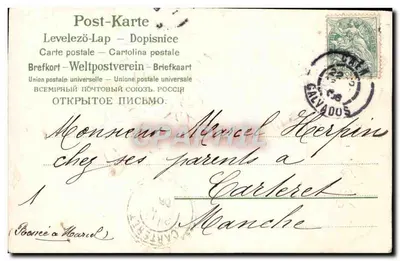 Post-Karte
Levelező-Lap — Dopisnice
Carte postale — Cartolina postale
Brefkort - Weltpostverein - Briefkaart
Union postale universelle — Unione postale universale
ВСЕМІРНЫЙ ПОЧТОВЫЙ СОЮЗЪ. РОССІЯ
ОТКРЫТОЕ ПИСЬМО.
CAEN
22
08
CALVADOS
Monsieur Marcel Herpin
chez ses parents à
Carteret
Manche
1
CARTERET